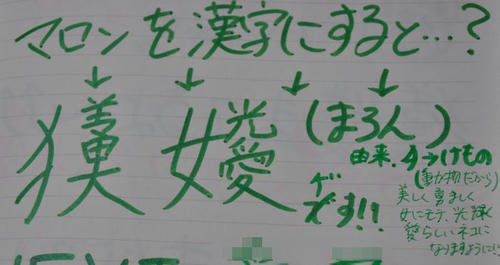 マロンを漢字にすると…?
↓ ↓ ↓ ↓
(まろん)
です!!
由来.犭→けもの
(動物だから)
美しく 勇ましく
女にモテ、光輝く
愛らしいネコに
なりますように!!